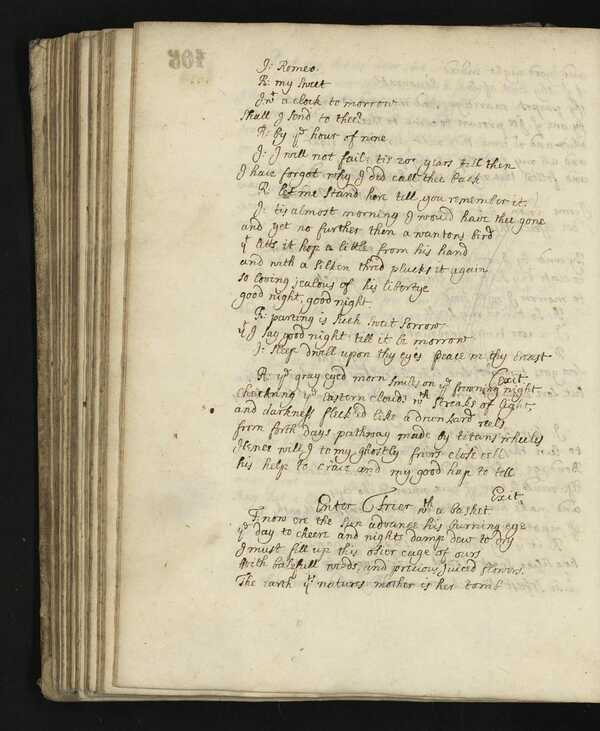 J: Romeo.
R: my sweet
J: wt a clock to morrow
shall I send to thee?
R: By ye hour of nine
J: I will not fail: tis 20 years till then
I have forgot why I did call thee back
R: let me stand here till you remember it.
J: tis almost morning I would have thee gone
and yet no further then a wantons bird
yt letts it hop a little from his hand
and with a silken thred plucks it again
so loving jealous of his libertye
good night, good night
R: parting is such sweet sorrow
yt I say good night till it be morrow
J: sleep dwell upon thy eyes peace in thy breast
Exit
R: ye gray eyed morn smiles on ye frowning night
checkring ye eastern clouds wth streaks of light,
and darkness fleck'd like a drunkard reels
from forth days pathway made by titans wheeles
Hence will I to my ghostly friers close cell
his help to crave and my good hap to tell
Exit
Enter Frier wth a basket
F: now ere the sun advance his burning eye
ye day to cheere and nights damp dew to dry
I must fill up this osier cage of ours
with balefull weeds, and precious juiced flowers.
The earth yts natures mother is her tomb